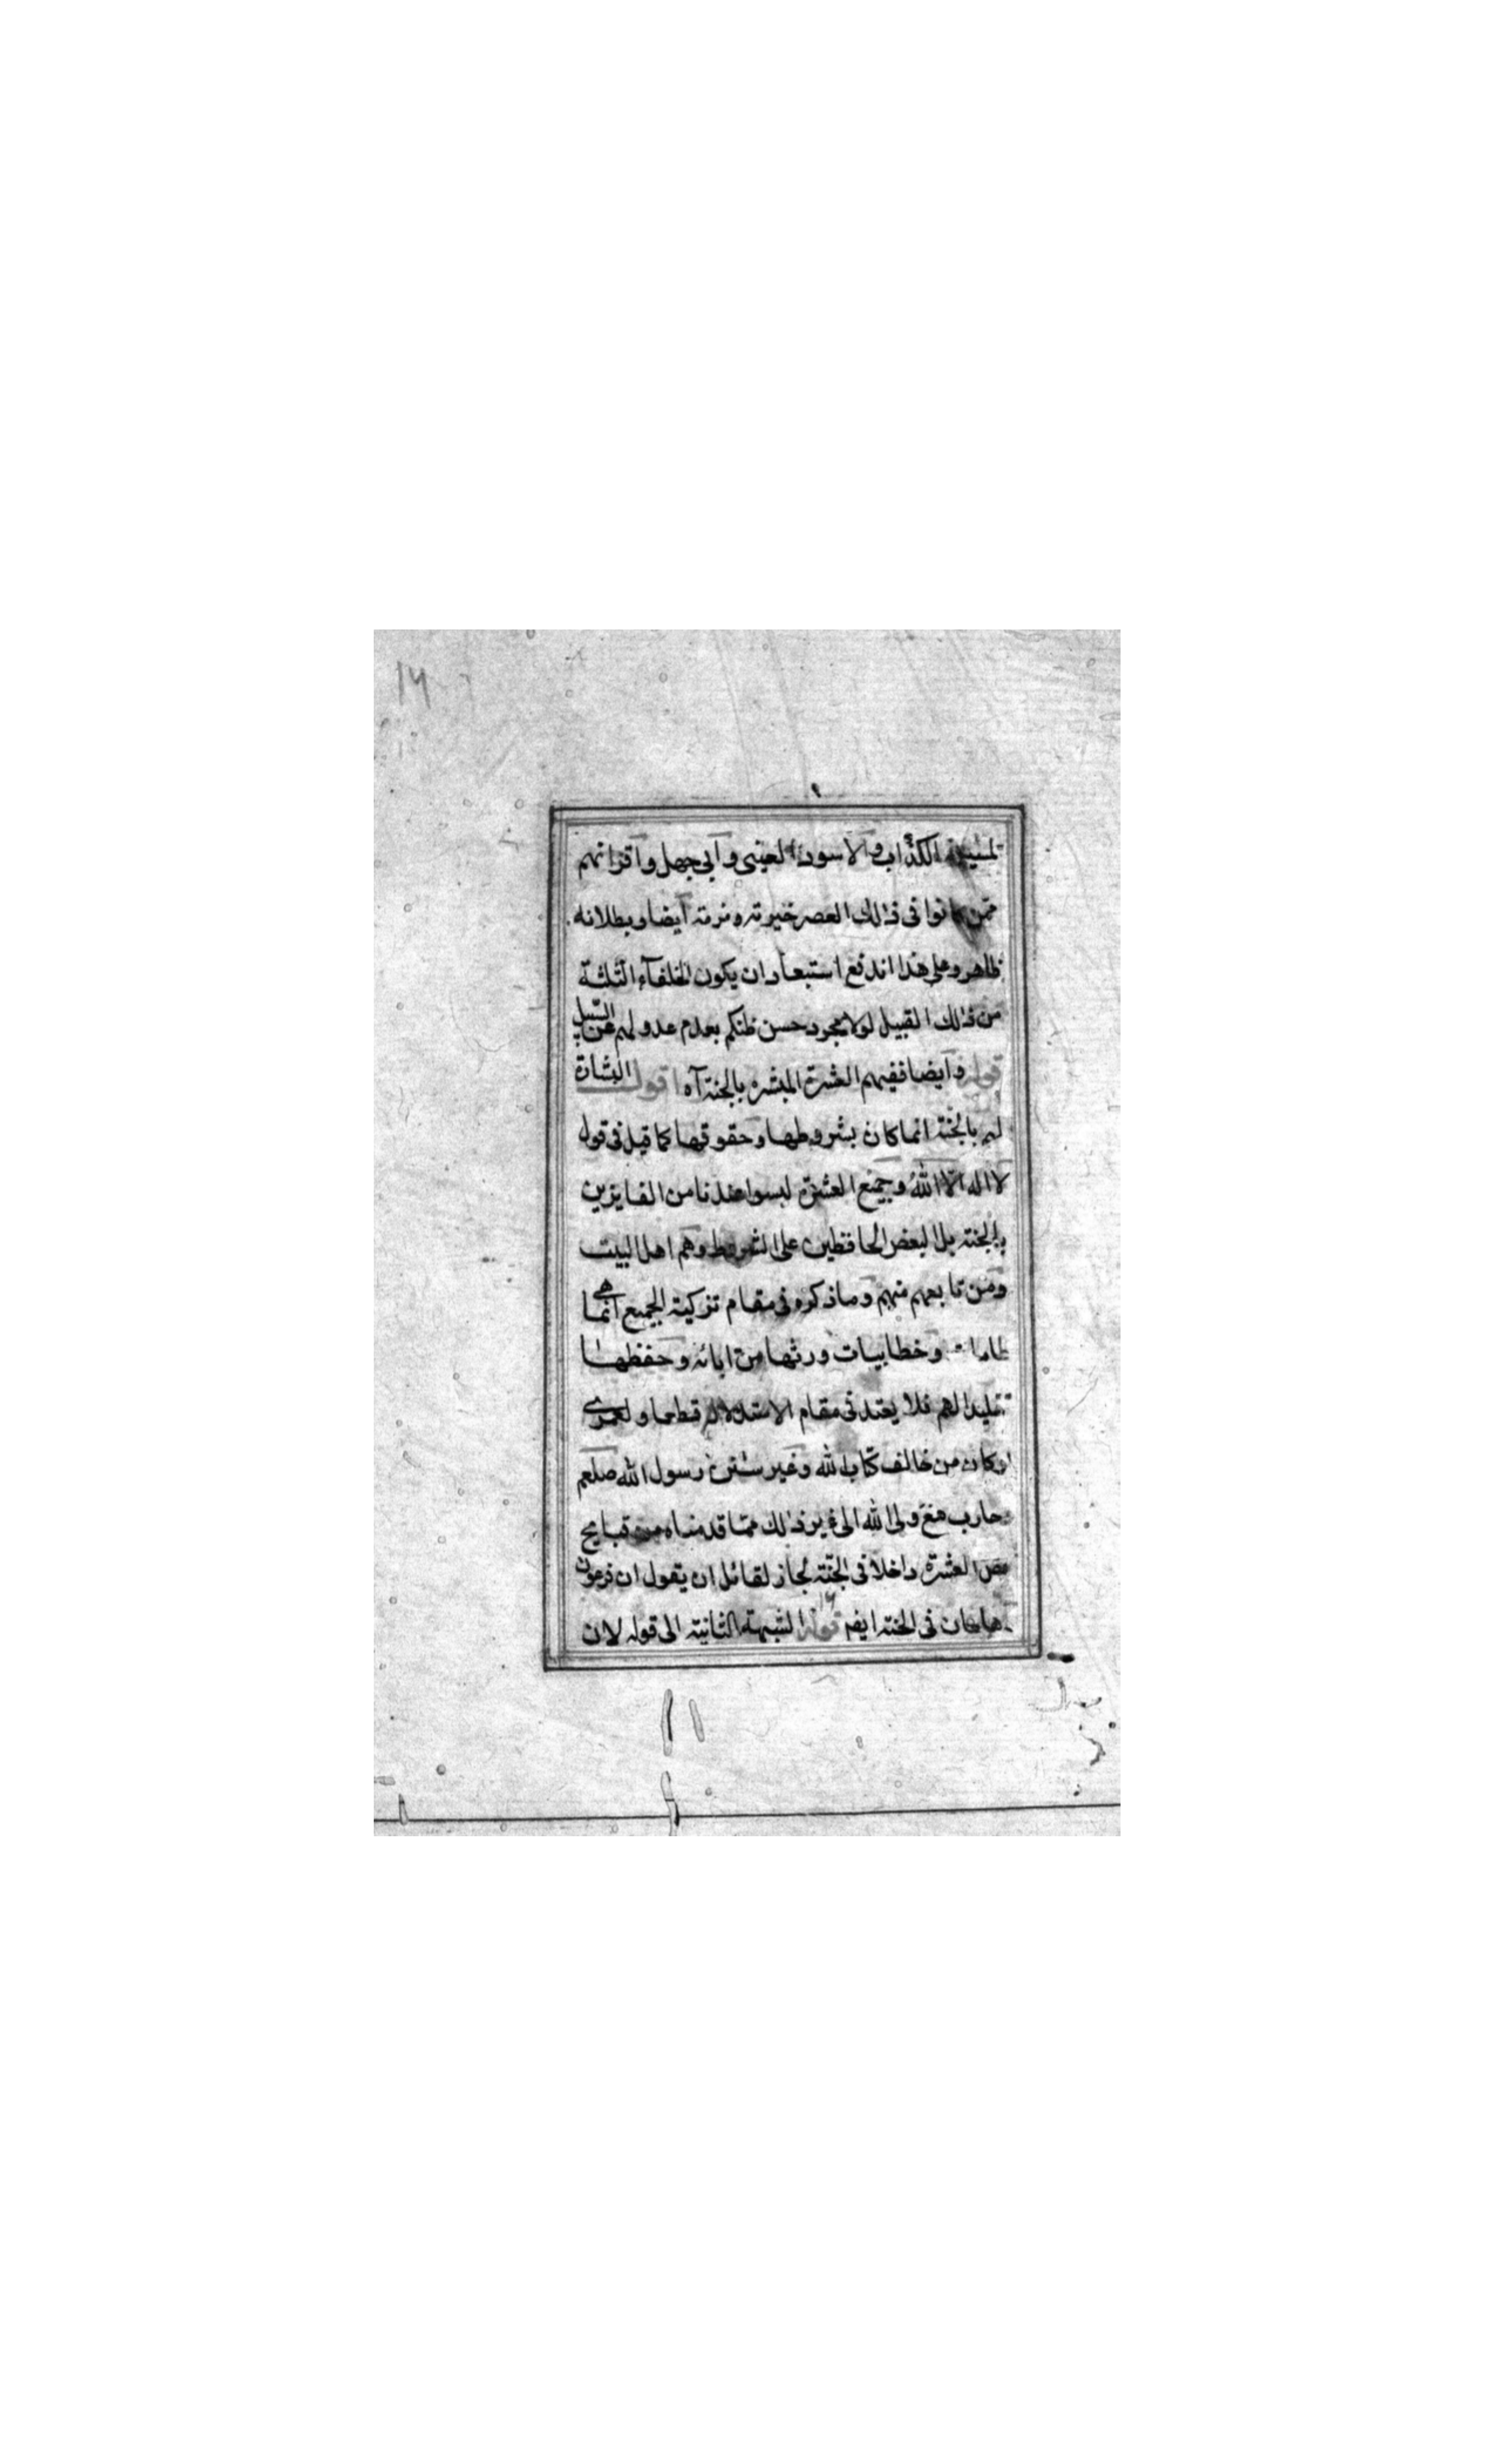 ١٦
لمسيلمة الكذاب والاسود العبنى وابى جهل واقرانهم
ممن كانوا فى ذالك العصر خيرته ونرمته ايضا وبطلانه
ظاهر وعلى هذا اندفع استبعاد ان يكون الخلفآء الثلثة
من ذالك القبيل لولا مجرد حسن ظنكم بعدم عدولهم عن السبيل
قوله وايضا ففيهم العشرة المبشره بالجنة آه اقول البشارة
لهم بالجنة انما كان بشروطها وحقوقها كما قيل فى قول
لا اله الا الله وجميع العشرة ليسوا عندنا من الفايزين
بالجنة بل البعض الحافظين على الشروط وهم اهل البيت
ومن تابعهم منهم وما ذكره فى مقام تزكية الجميع انما هى
وخطابيات ورثها من ابائه وحفظها
تقليدا لهم فلا يعتد فى مقام الاستدلال قطعا ولعمرى
لو كان من خالف كتاب الله وغير سنن رسول الله صلعم
وحارب مع ولى الله الى غير ذلك مما قدمناه من قبايح
بعض العشرة داخلا فى الجنة لجاز لقائل ان يقول ان فرعون
وهامان فى الجنة ايضا قوله الشبهة الثانية الى قوله لان